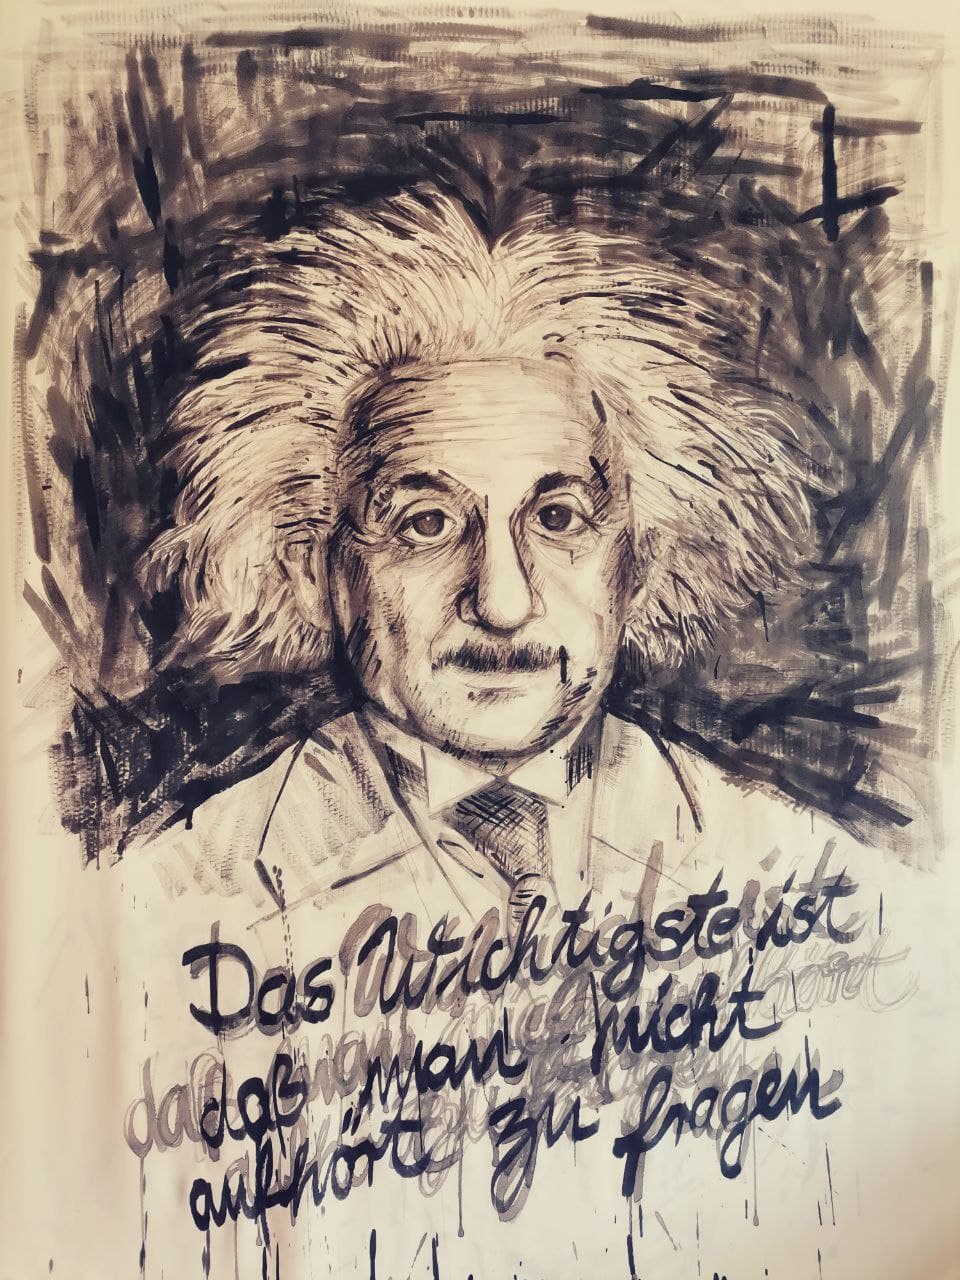 Das Wichtigste ist
daß man nicht
aufhört zu fragen